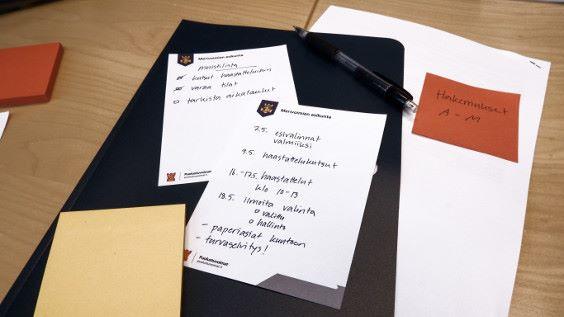 Merivoimien esikunta
muistilista
kutsut haastatteluihin
varaa tilat
tarkista aikataulut
Merivoimien esikunta
7.5. esivalinnat
valmiiksi
9.5. haastattelukutsut
16.-17.5. haastattelut
klo 10-13
18.5. ilmoita valinta
o valitu
o hallinto
- paperiasiat kuntoon
- turvaselvitys!
Puolustusvoimat
Hakemukset
A-M